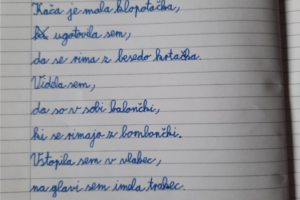 Kača je mala klopotačka,
ugotovila sem,
da se rima z besedo krtačka.
Videla sem,
da so v sobi balončki,
ki se rimajo z bombončki.
Vstopila sem v vlakec,
na glavi sem imela trakec.